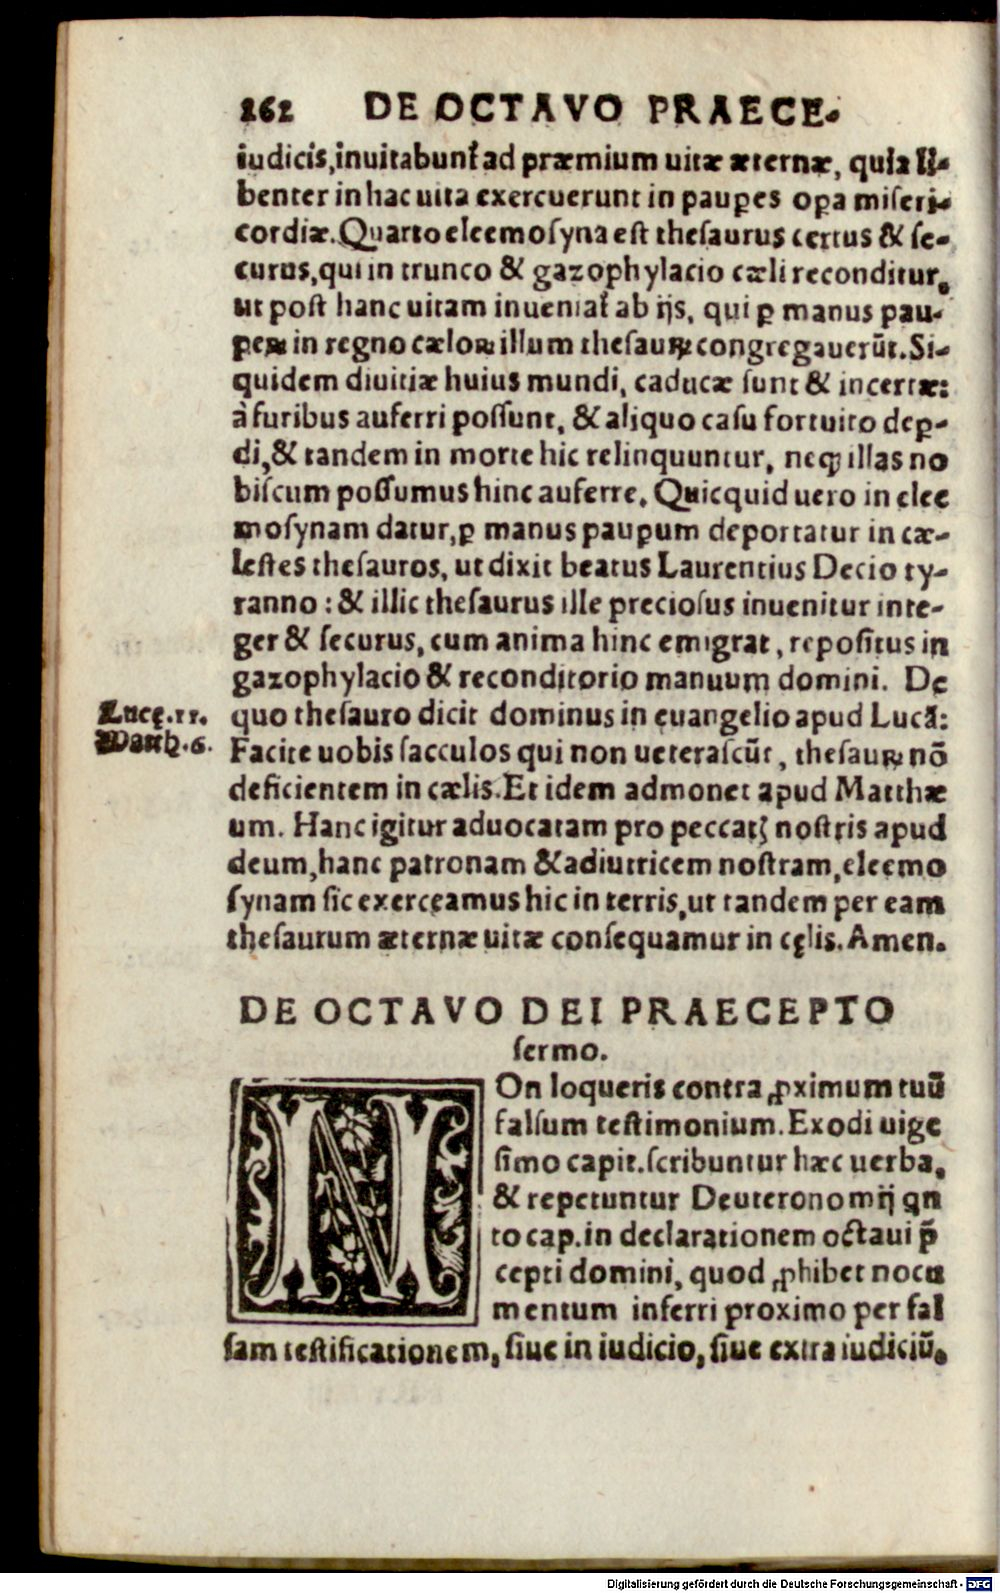 262 DE OCTAVO PRAECE-
iudicis, inuitabunť ad præmium uitæ æternæ, quia li-
benter in hac uita exercuerunt in paup̱es op̱a miseri-
cordiæ. Quarto eleemosyna est thesaurus certus & se-
curus, qui in trunco & gazophylacio cæli reconditur,
ut post hanc uitam inueniať ab ijs, qui p̱ manus pau-
peꝝ in regno cæloꝝ illum thesauꝝ congregauerūt. Si-
quidem diuitiæ huius mundi, caducæ sunt & incertæ:
à furibus auferri possunt, & aliquo casu fortuito dep̱-
di, & tandem in morte hic relinquuntur, neq; illas no
biscum possumus hinc auferre. Quicquid uero in elee
mosynam datur, p̱ manus paup̱um deportatur in cæ-
lestes thesauros, ut dixit beatus Laurentius Decio ty-
ranno: & illic thesaurus ille preciosus inuenitur inte-
ger & securus, cum anima hinc emigrat, repositus in
gazophylacio & reconditorio manuum domini. De
Lucę. 11.
quo thesauro dicit dominus in euangelio apud Lucā:
Matth. 6.
Facite uobis sacculos qui non ueterascūt, thesauꝝ nō
deficientem in cælis. Et idem admonet apud Matthæ
um. Hanc igitur aduocatam pro peccatꝭ nostris apud
deum, hanc patronam & adiutricem nostram, eleemo
synam sic exerceamus hic in terris, ut tandem per eam
thesaurum æternæ uitæ consequamur in cęlis. Amen.
DE OCTAVO DEI PRAECEPTO
sermo.
NOn loqueris contra ꝓximum tuū
falsum testimonium. Exodi uige
simo capit. scribuntur hæc uerba,
& repetuntur Deuteronomij qn
to cap. in declarationem octaui p̄
cepti domini, quod ꝓhibet nocu
mentum inferri proximo per fal
sam testificationem, siue in iudicio, siue extra iudiciū.
Digitalisierung gefördert durch die Deutsche Forschungsgemeinschaft - DFG